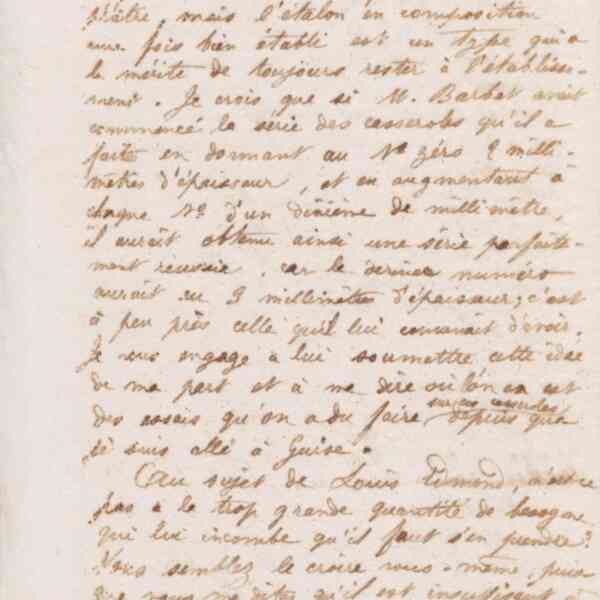 plâtre, mais l'étalon en composition
une fois bien établi est un type qui a
le mérite de toujours rester à l'établisse-
ment. Je crois que si M. Barbet avait
commencé la série des casseroles qu'il a
faite en donnant au No zéro 2 milli-
mètres d'épaisseur, et en augmentant à
chaque No d'un dixième de millimètre,
il aurait obtenu ainsi une série parfaite-
ment réussie, car le dernier numéro
aurait eu 3 millimètres d'épaisseur; c'est
à peu près celle qu'il lui convenait d'avoir.
Je vous engage à lui soumettre cette idée
de ma part et à me dire où l'on en est
des essais qu'on a du faire depuis que
je suis allé à Guise.
Au sujet de Louis Edmond, n'est-ce
pas à la trop grande quantité de besogne
qui lui incombe qu'il faut s'en prendre?
Vous semblez le croire vous-même, puis-
que vous me dites qu'il est insuffisant à